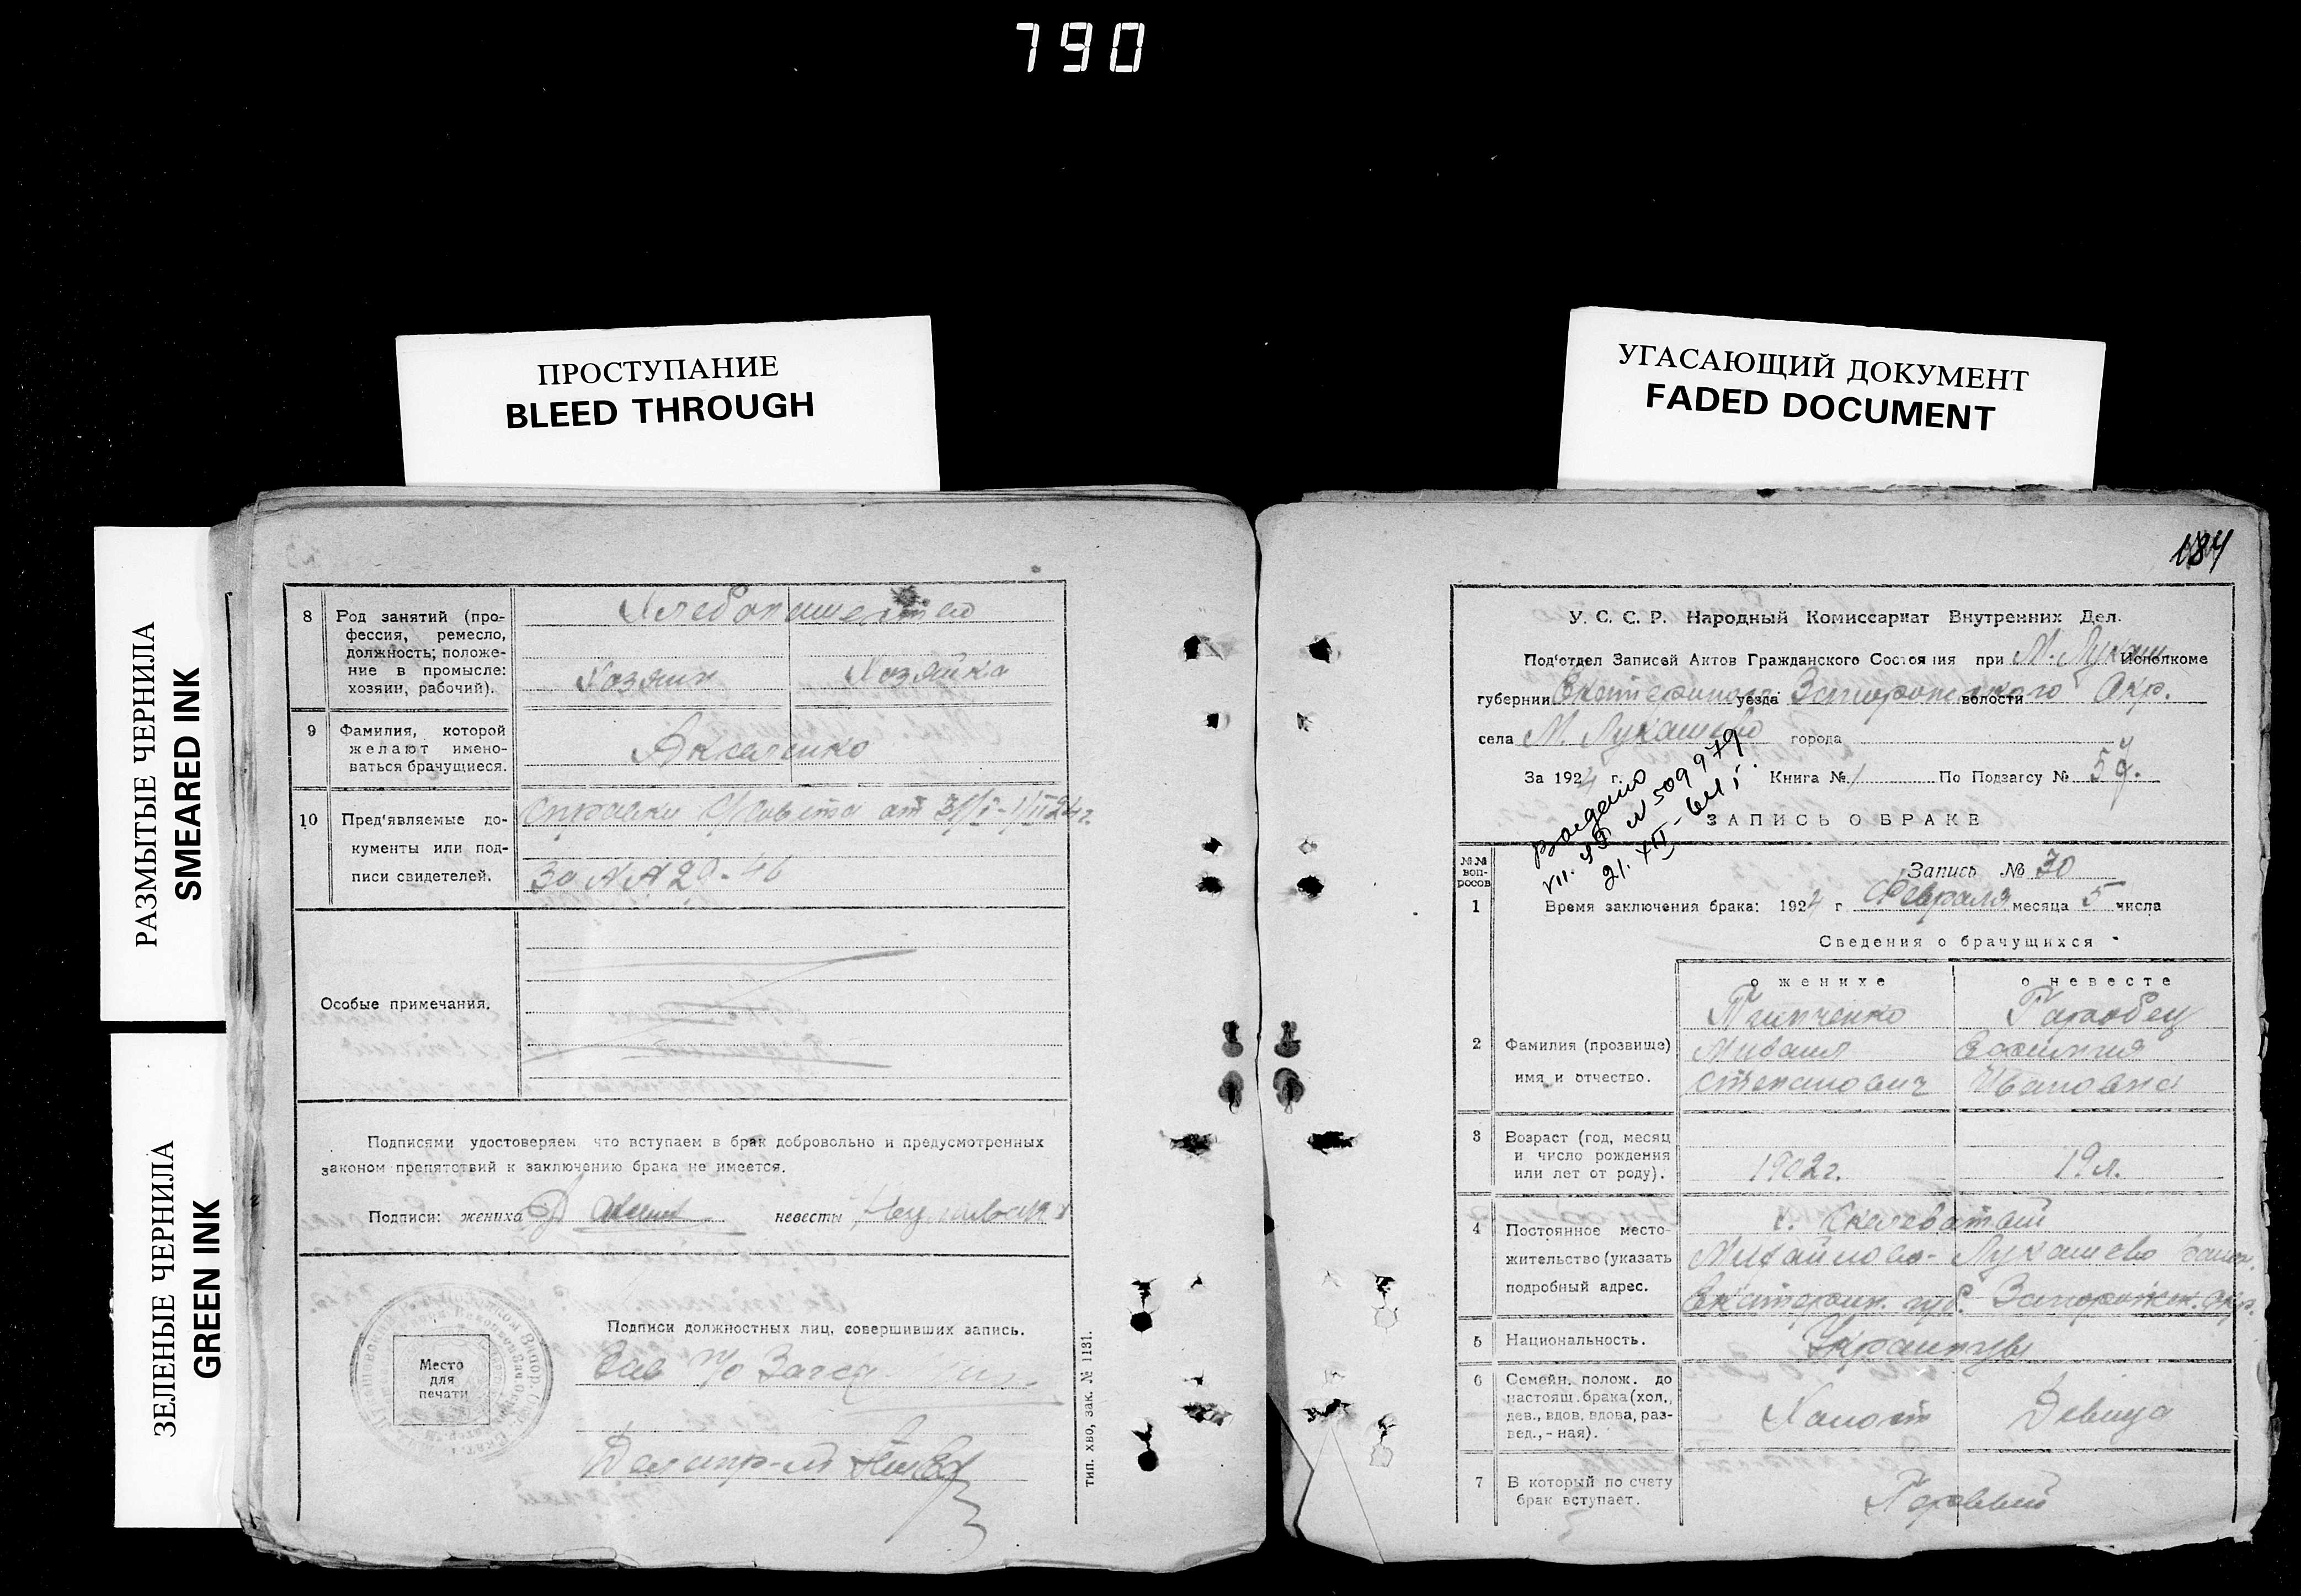 790
ПРОСТУПАНИЕ
BLEED THROUGH
УГАСАЮЩИЙ ДОКУМЕНТ
FADED DOCUMENT
РАЗМЫТЫЕ ЧЕРНИЛА
SMEARED INK
ЗЕЛЕНЫЕ ЧЕРНИЛА
GREEN INK
8 Род занятий (про-
фессия, ремесло,
должность; положе-
ние в промысле:
хозяин, рабочий).
Хлебопашество
Хозяин Хозяйка
9 Фамилия, которой
желают имено-
ваться брачущиеся.
10 Пред'являемые до-
кументы или под-
писи свидетелей.
Справки от 31/I-1/II 24 г.
За NN 29-
Особые примечания.
Подписями удостоверяем что вступаем в брак добровольно и предусмотренных
законом препятствий к заключению брака не имеется.
Подписи: жениха невесты
Место
для
печати
Подписи должностных лиц, совершивших запись.
Зав п/о Загса
Делопр-ль
тип. ХВО, зак. № 1131.
184
У. С. С. Р. Народный Комиссариат Внутренних Дел.
Под'отдел Записей Актов Гражданского Состояния при М. Лукаш Исполкоме
губернии Екатериносл. уезда Запорожского волости Окр.
села М. Лукашево города
За 1924 г. Книга № 1 По Подзагсу №
Выдано
N 509979
21. XII-
ЗАПИСЬ О БРАКЕ
№№
воп-
росов
Запись № 30
1 Время заключения брака: 1924 г Февраля месяца 5 числа
Сведения о брачущихся
о женихе о невесте
2 Фамилия (прозвище)
имя и отчество.
Степанович Ивановна
3 Возраст (год, месяц
и число рождения
или лет от роду).
1902 г. 19 л.
4 Постоянное место-
жительство (указать
подробный адрес.
Михайлово-Лукашево
Екатерин. губ. Запорожск. Окр.
5 Национальность.
Украинцы
6 Семейн. полож. до
настоящ. брака (хол.,
дев., вдов, вдова, раз-
вед.,-ная).
Холост Девица
7 В который по счету
брак вступает.
Первый